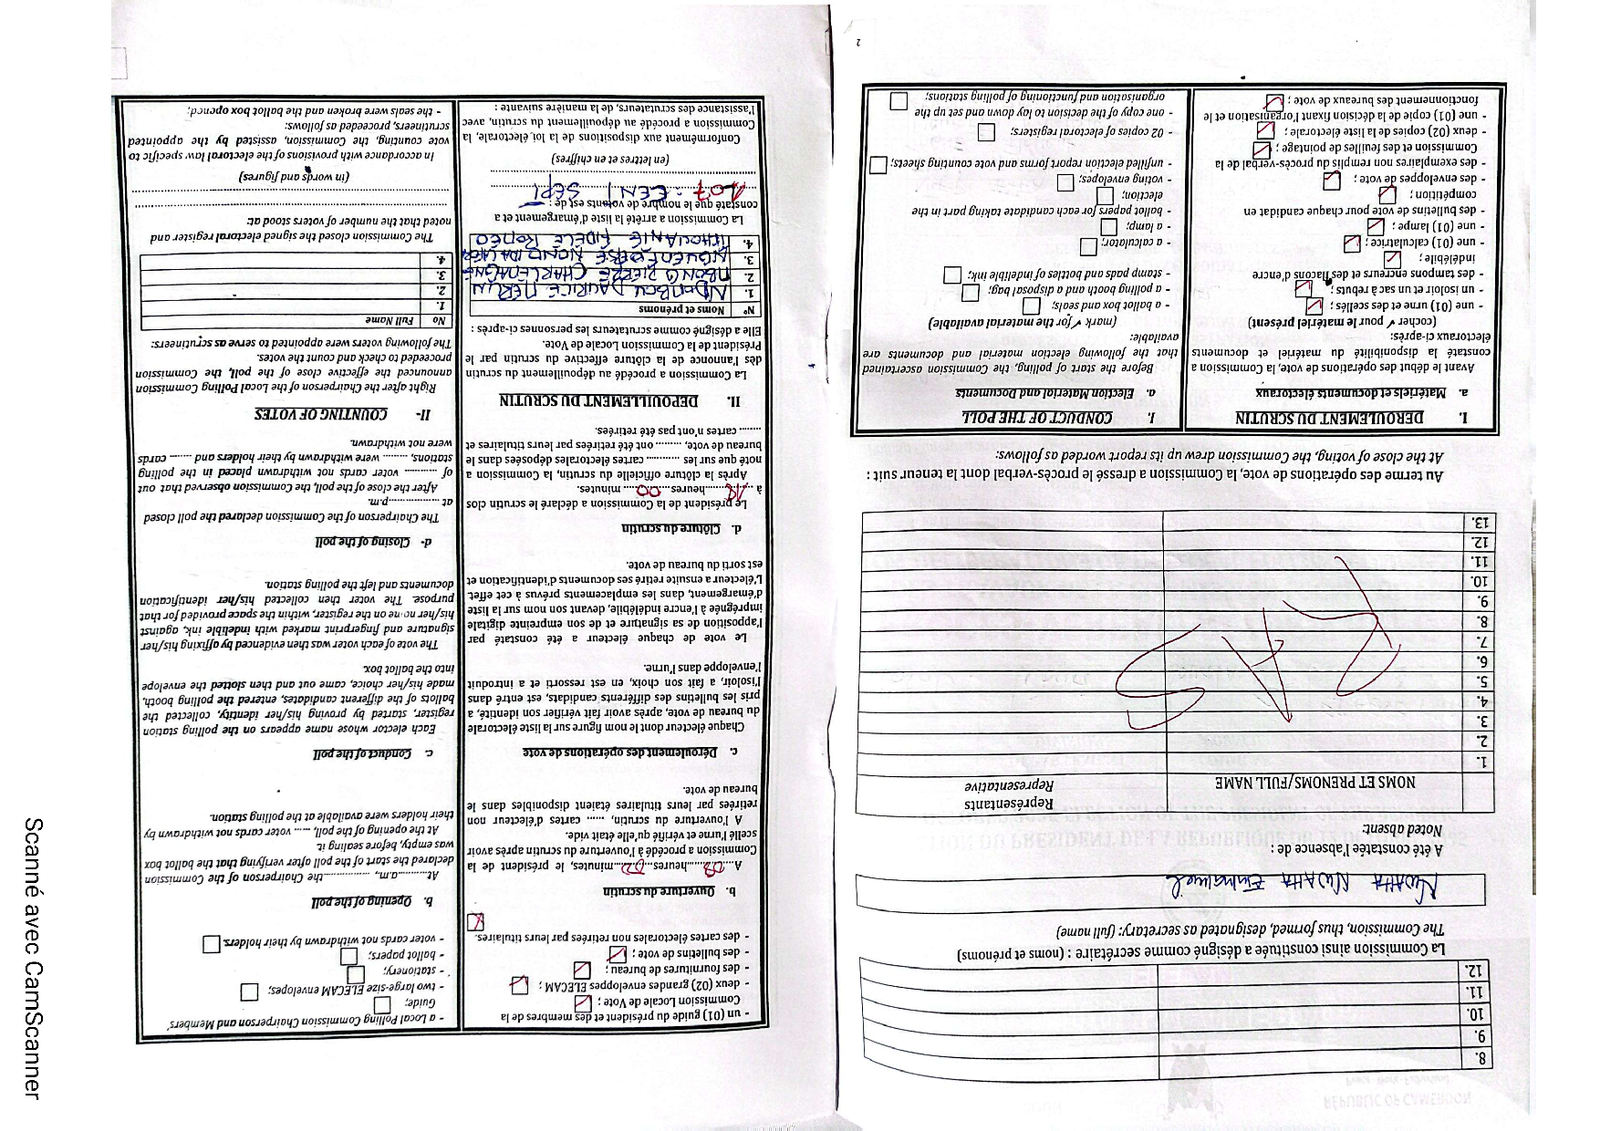 8.
9.
10.
11.
12.
La Commission ainsi constituée a désigné comme secrétaire : (noms et prénoms)
The Commission, thus formed, designated as secretary: (full name)
NWAHA NWAHA Emmanuel
A été constatée l'absence de :
Noted absent:
NOMS ET PRENOMS/FULL NAME
Représentants
Representative
1.
2.
3.
4.
5.
6.
7.
8.
9.
10.
11.
12.
13.
RAS
Au terme des opérations de vote, la Commission a dressé le procès-verbal dont la teneur suit :
At the close of voting, the Commission drew up its report worded as follows:
I. DEROULEMENT DU SCRUTIN
a. Matériels et documents électoraux
Avant le début des opérations de vote, la Commission a
constaté la disponibilité du matériel et documents
électoraux ci-après:
(cocher ✓ pour le matériel présent)
- une (01) urne et des scellés ;
- un isoloir et un sac à rebuts ;
- des tampons encreurs et des flacons d'encre
indélébile ;
- une (01) calculatrice ;
- une (01) lampe ;
- des bulletins de vote pour chaque candidat en
compétition ;
- des enveloppes de vote ;
- des exemplaires non remplis du procès-verbal de la
Commission et des feuilles de pointage ;
- deux (02) copies de la liste électorale ;
- une (01) copie de la décision fixant l'organisation et le
fonctionnement des bureaux de vote ;
I. CONDUCT OF THE POLL
a. Election Material and Documents
Before the start of polling, the Commission ascertained
that the following election material and documents are
available:
(mark ✓ for the material available)
- a ballot box and seals;
- a polling booth and a disposal bag;
- stamp pads and bottles of indelible ink;
- a calculator;
- a lamp;
- ballot papers for each candidate taking part in the
election;
- voting envelopes;
- unfilled election report forms and vote counting sheets;
- 02 copies of electoral registers;
- one copy of the decision to lay down and set up the
organisation and functioning of polling stations;
2
- un (01) guide du président et des membres de la
Commission Locale de Vote ;
- deux (02) grandes enveloppes ELECAM ;
- des fournitures de bureau ;
- des bulletins de vote ;
- des cartes électorales non retirées par leurs titulaires.
b. Ouverture du scrutin
A ...08...heures...00...minutes, le président de la
Commission a procédé à l'ouverture du scrutin après avoir
scellé l'urne et vérifié qu'elle était vide.
A l'ouverture du scrutin, ...... cartes d'électeur non
retirées par leurs titulaires étaient disponibles dans le
bureau de vote.
c. Déroulement des opérations de vote
Chaque électeur dont le nom figure sur la liste électorale
du bureau de vote, après avoir fait vérifier son identité, a
pris les bulletins des différents candidats, est entré dans
l'isoloir, a fait son choix, en est ressorti et a introduit
l'enveloppe dans l'urne.
Le vote de chaque électeur a été constaté par
l'apposition de sa signature et de son empreinte digitale
imprégnée à l'encre indélébile, devant son nom sur la liste
d'émargement, dans les emplacements prévus à cet effet.
L'électeur a ensuite retiré ses documents d'identification et
est sorti du bureau de vote.
d. Clôture du scrutin
Le président de la Commission a déclaré le scrutin clos
à ...18...heures...00...minutes.
Après la clôture officielle du scrutin, la Commission a
noté que sur les ......... cartes électorales déposées dans le
bureau de vote, ......... ont été retirées par leurs titulaires et
........ cartes n'ont pas été retirées.
II. DEPOUILLEMENT DU SCRUTIN
La Commission a procédé au dépouillement du scrutin
dès l'annonce de la clôture effective du scrutin par le
Président de la Commission Locale de Vote.
Elle a désigné comme scrutateurs les personnes ci-après :
N° Noms et prénoms
1. NDOMBOU MAURICE MERLIN
2. MBONG PIERRE CHARLEMAGNE
3.
4. FIDELE ROMEO
La Commission a arrêté la liste d'émargement et a
constaté que le nombre de votants est de :
107 : CENT SEPT
(en lettres et en chiffres)
Conformément aux dispositions de la loi électorale, la
Commission a procédé au dépouillement du scrutin, avec
l'assistance des scrutateurs, de la manière suivante :
- a Local Polling Commission Chairperson and Members'
Guide;
- two large-size ELECAM envelopes;
- stationery;
- ballot papers;
- voter cards not withdrawn by their holders.
b. Opening of the poll
At............a.m, ..................the Chairperson of the Commission
declared the start of the poll after verifying that the ballot box
was empty, before sealing it.
At the opening of the poll, ...... voter cards not withdrawn by
their holders were available at the polling station.
c. Conduct of the poll
Each elector whose name appears on the polling station
register, started by proving his/her identity, collected the
ballots of the different candidates, entered the polling booth,
made his/her choice, came out and then slotted the envelope
into the ballot box.
The vote of each voter was then evidenced by affixing his/her
signature and fingerprint marked with indelible ink, against
his/her name on the register, within the space provided for that
purpose. The voter then collected his/her identification
documents and left the polling station.
d- Closing of the poll
The Chairperson of the Commission declared the poll closed
at ..................p.m.
After the close of the poll, the Commission observed that out
of .......... voter cards not withdrawn placed in the polling
stations, ........ were withdrawn by their holders and ........ cards
were not withdrawn.
II- COUNTING OF VOTES
Right after the Chairperson of the Local Polling Commission
announced the effective close of the poll, the Commission
proceeded to check and count the votes.
The following voters were appointed to serve as scrutineers:
No Full Name
1.
2.
3.
4.
The Commission closed the signed electoral register and
noted that the number of voters stood at:
(in words and figures)
In accordance with provisions of the electoral law specific to
vote counting, the Commission, assisted by the appointed
scrutineers, proceeded as follows:
- the seals were broken and the ballot box opened;
Scanné avec CamScanner